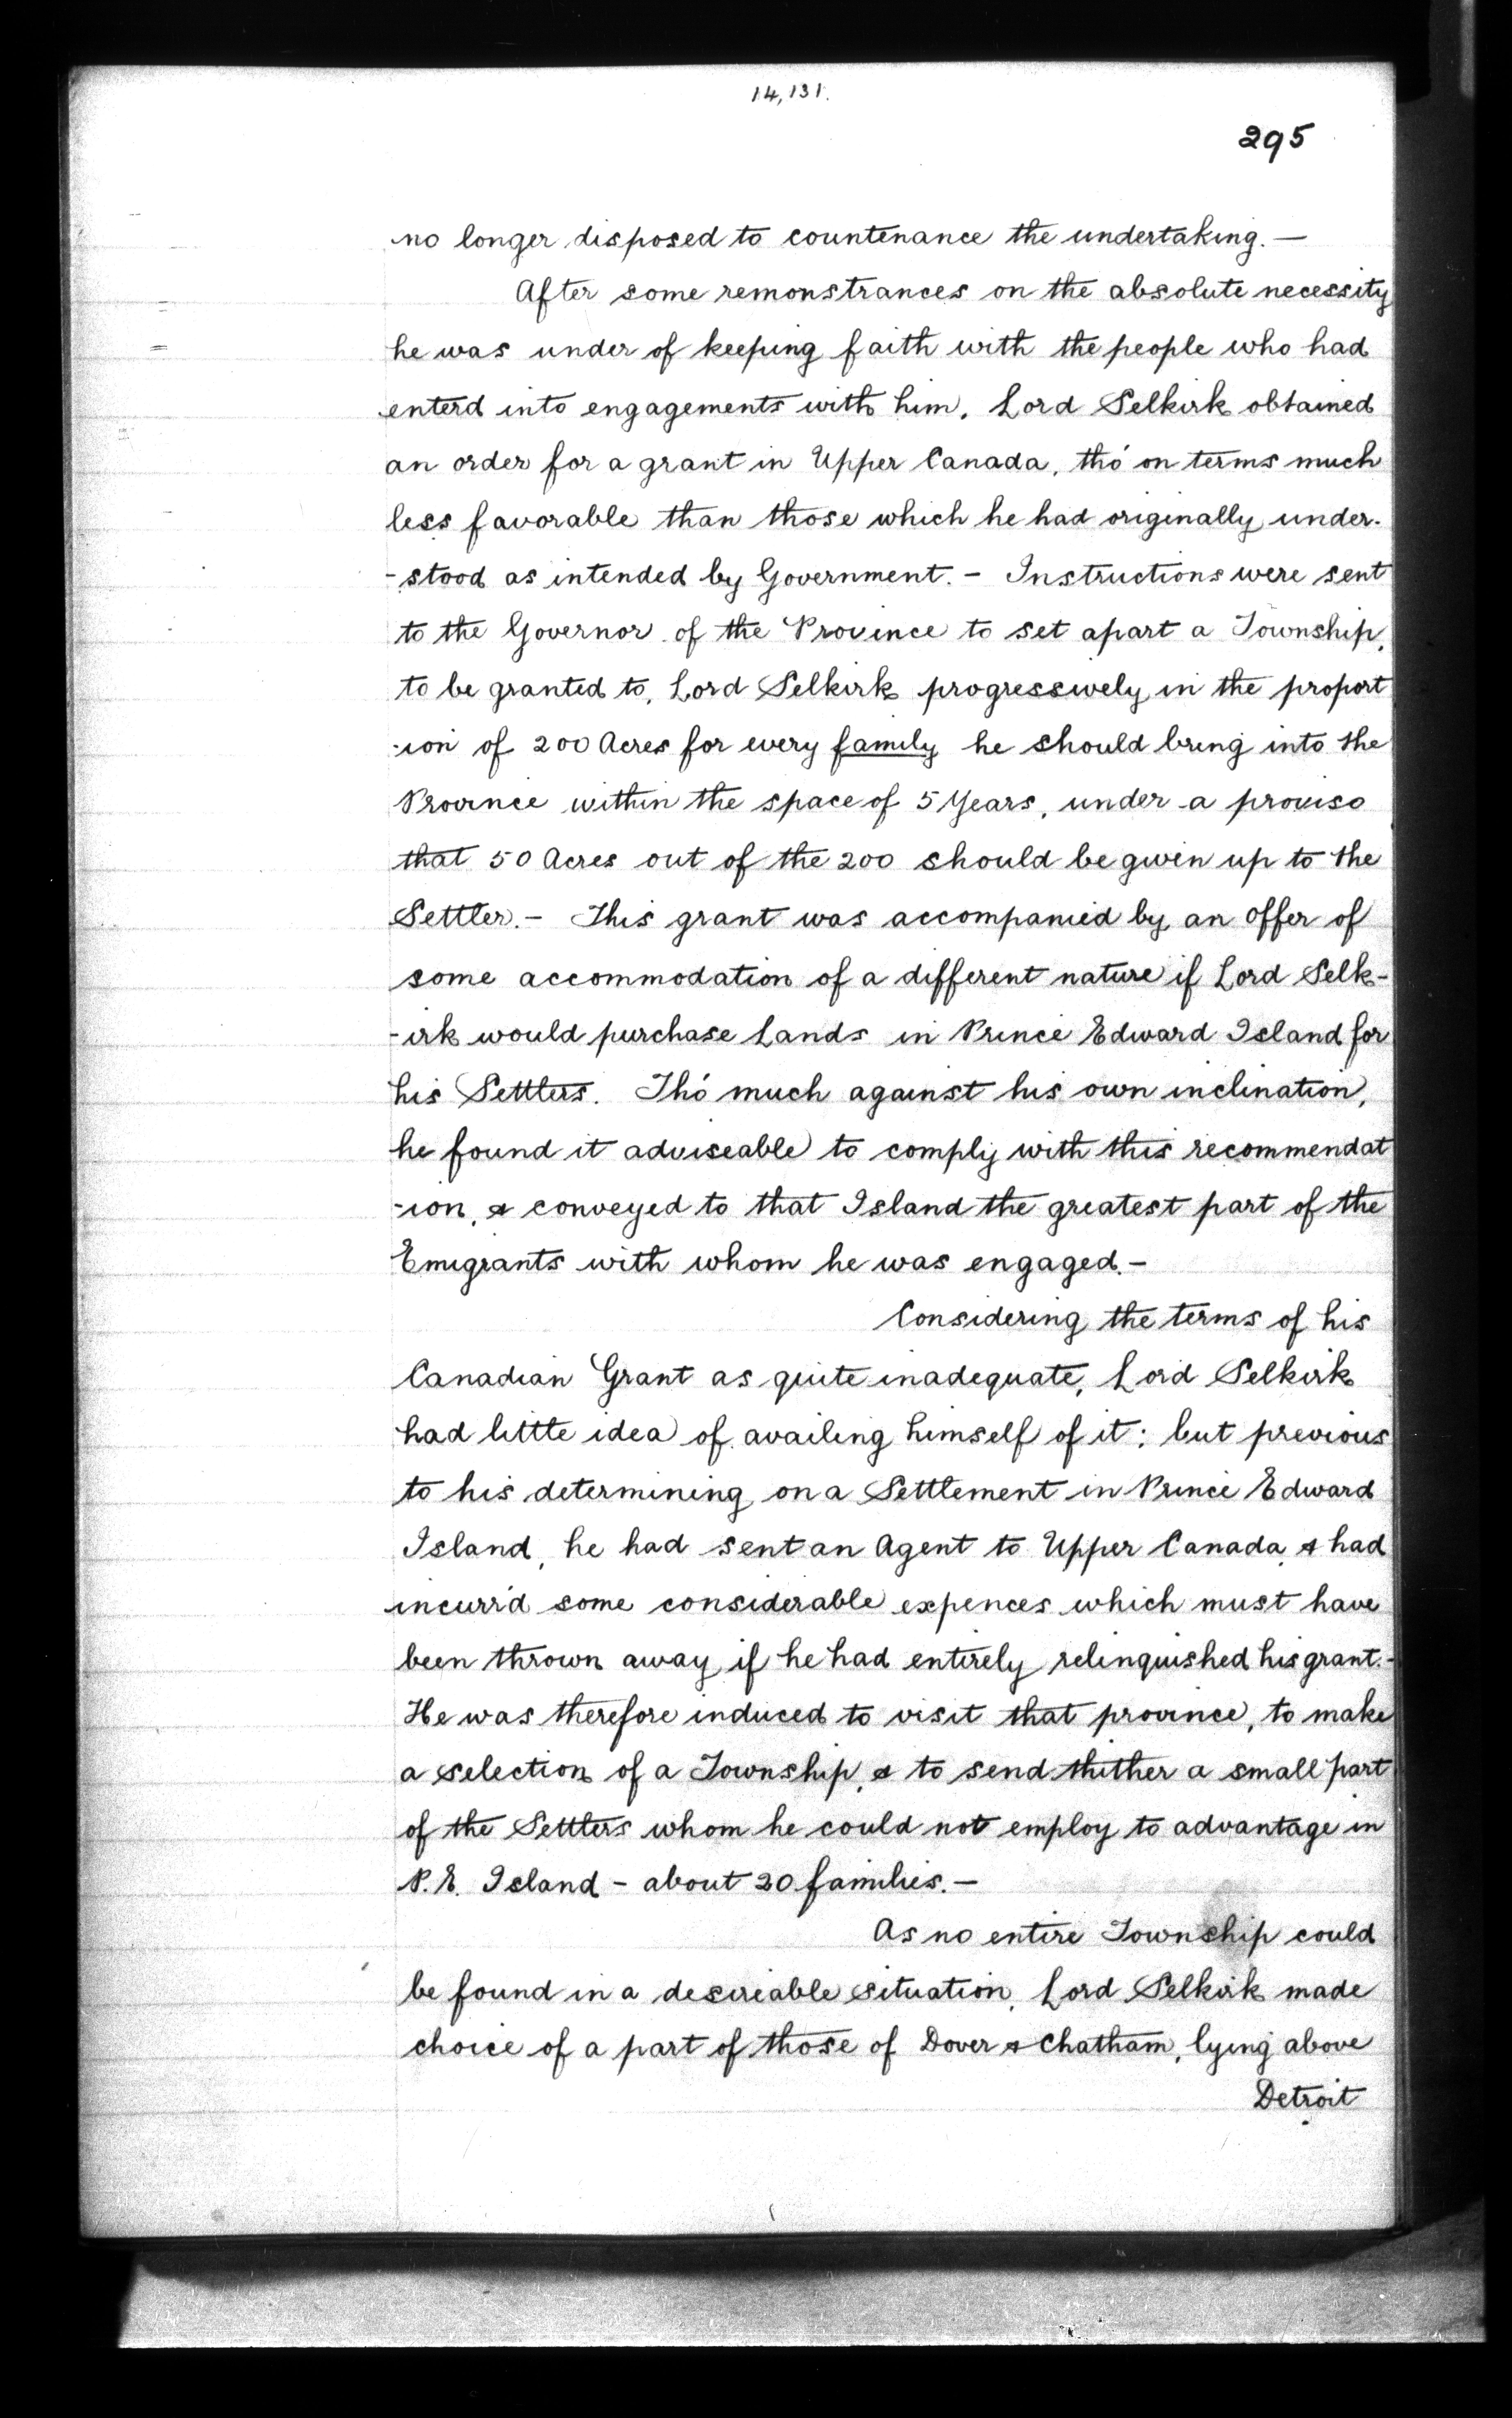 14,131.
295
no longer disposed to countenance the undertaking. —
After some remonstrances on the absolute necessity
he was under of keeping faith with the people who had
enterd into engagements with him, Lord Selkirk obtained
an order for a grant in Upper Canada, tho' on terms much
less favorable than those which he had originally under-
-stood as intended by Government. - Instructions were sent
to the Governor of the Province to set apart a Township,
to be granted to, Lord Selkirk progressively in the proport
-ion of 200 Acres for every family he should bring into the
Province within the space of 5 Years, under a proviso
that 50 Acres out of the 200 should be given up to the
Settler. - This grant was accompanied by an offer of
some accommodation of a different nature if Lord Selk-
-irk would purchase Lands in Prince Edward Island for
his Settlers. Tho' much against his own inclination,
he found it adviseable to comply with this recommendat
-ion, & conveyed to that Island the greatest part of the
Emigrants with whom he was engaged. -
Considering the terms of his
Canadian Grant as quite inadequate, Lord Selkirk
had little idea of availing himself of it; but previous
to his determining on a Settlement in Prince Edward
Island, he had sent an Agent to Upper Canada, & had
incurr'd some considerable expences which must have
been thrown away if he had entirely relinquished his grant. -
He was therefore induced to visit that province, to make
a selection of a Township, & to send thither a small part
of the Settlers whom he could not employ to advantage in
P. E. Island - about 20 families. -
As no entire Township could
be found in a desireable situation, Lord Selkirk made
choice of a part of those of Dover & Chatham, lying above
Detroit